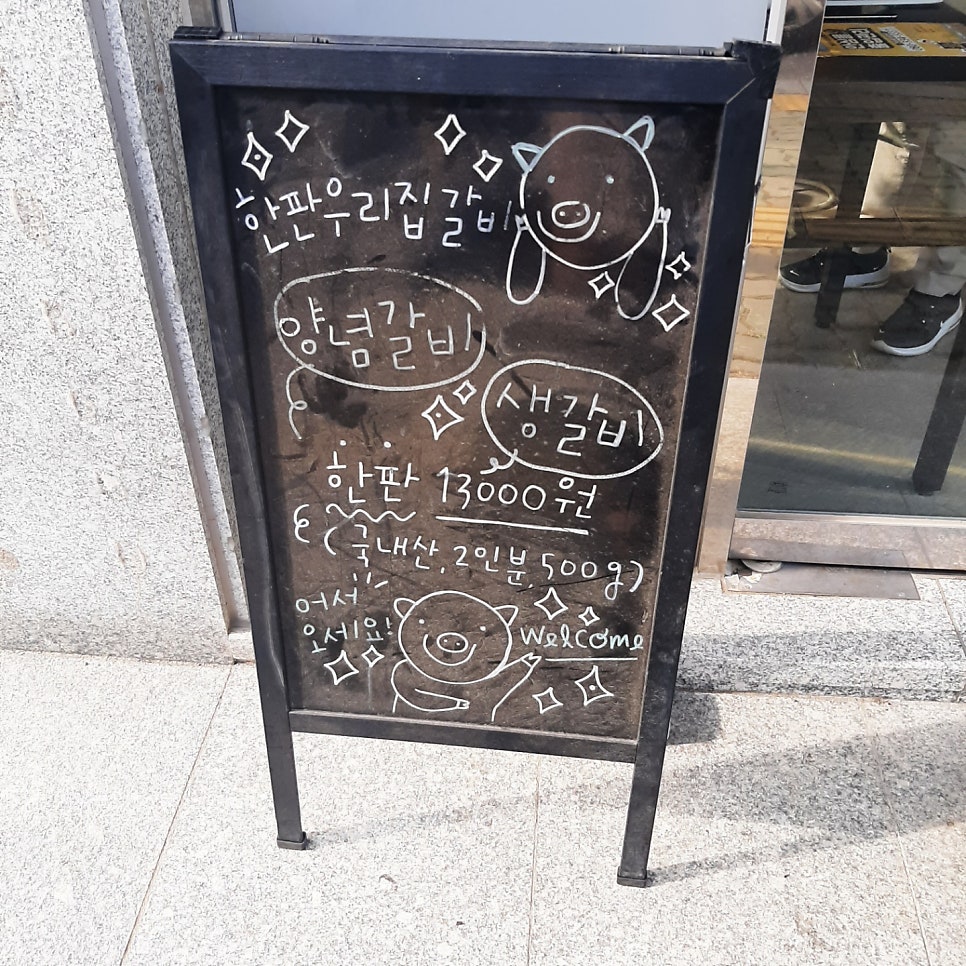 한판우리집갈비
양념갈비
생갈비
한판 13000원
(국내산, 2인분, 500g)
어서
오세요!
welcome